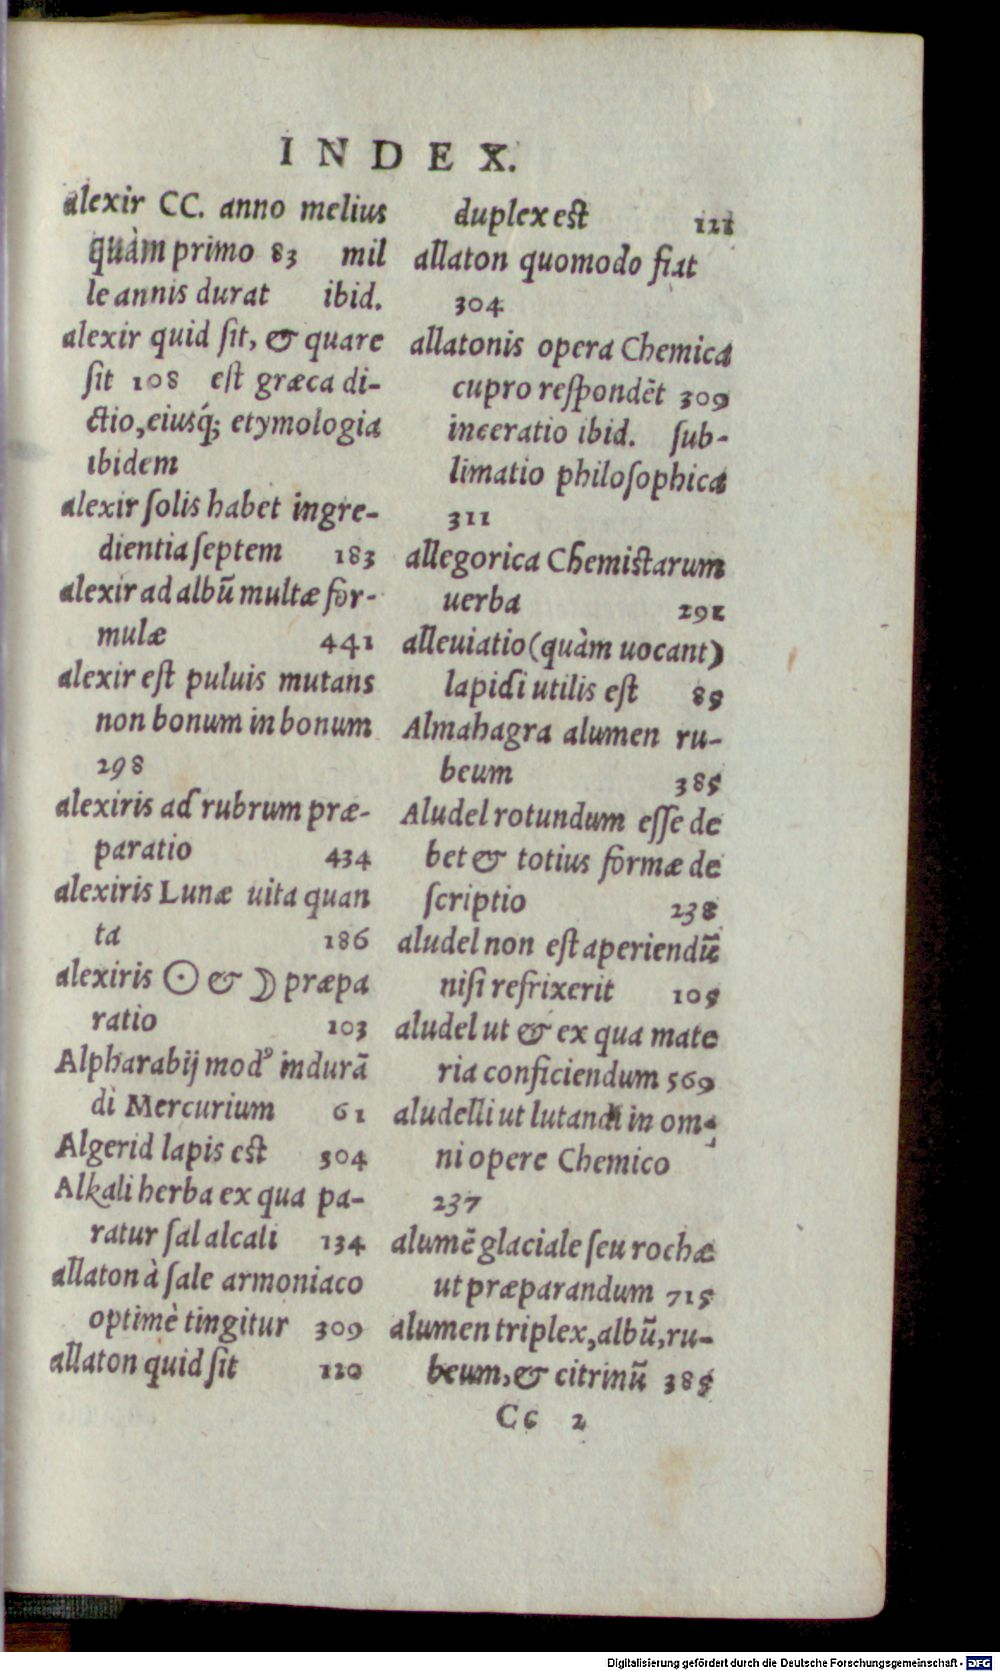 INDEX.
alexir CC. anno melius
quàm primo 83 mil
le annis durat ibid.
alexir quid ſit, & quare
ſit 108 eſt græca di-
ctio, eiusq́; etymologia
ibidem
alexir ſolis habet ingre-
dientia ſeptem 183
alexir ad albū multæ for-
mulæ 441
alexir eſt puluis mutans
non bonum in bonum
298
alexiris ad rubrum præ-
paratio 434
alexiris Lunæ uita quan
ta 186
alexiris ☉ & ☽ præpa
ratio 103
Alpharabij modꝰ indurā
di Mercurium 61
Algerid lapis eſt 304
Alkali herba ex qua pa-
ratur ſal alcali 134
allaton à ſale armoniaco
optimè tingitur 309
allaton quid ſit 120
duplex eſt 121
allaton quomodo fiat
304
allatonis opera Chemica
cupro reſpondēt 309
inceratio ibid. ſub-
limatio philoſophica
311
allegorica Chemiſtarum
uerba 292
alleuiatio (quàm uocant)
lapidi utilis eſt 85
Almahagra alumen ru-
beum 385
Aludel rotundum eſſe de
bet & totius formæ de
ſcriptio 238
aludel non eſt aperiendū
niſi refrixerit 105
aludel ut & ex qua mate
ria conficiendum 569
aludelli ut lutandi in om-
ni opere Chemico
237
alumē glaciale ſeu rochæ
ut præparandum 715
alumen triplex, albū, ru-
beum, & citrinū 385
Cc 2
Digitalisierung gefördert durch die Deutsche Forschungsgemeinschaft - DFG